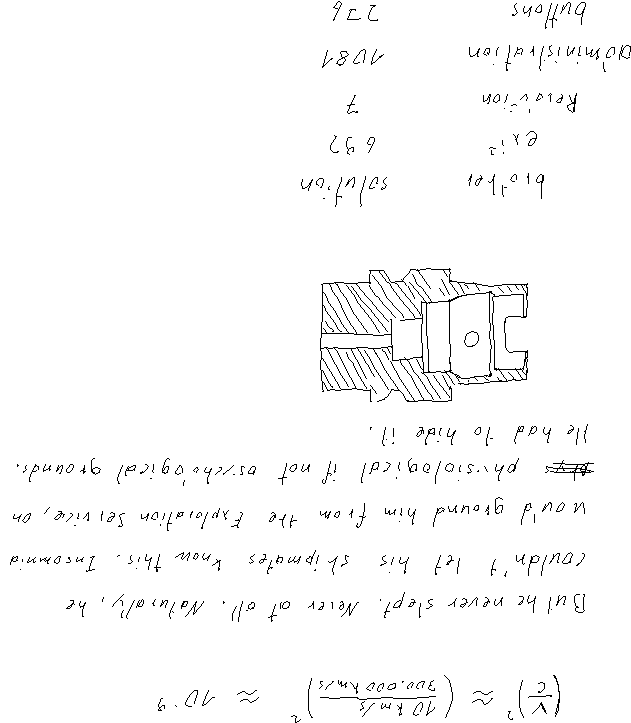 (v/c)² ≈ (10 km/s / 300.000 km/s)² ≈ 10⁻⁹
But he never slept. Never at all. Naturally, he
couldn't let his shipmates know this. Insomnia
would ground him from the Exploration Service, on
physiological if not psychological grounds.
He had to hide it.
brother solution
632
Relation 7
administration 1081
buttons 276